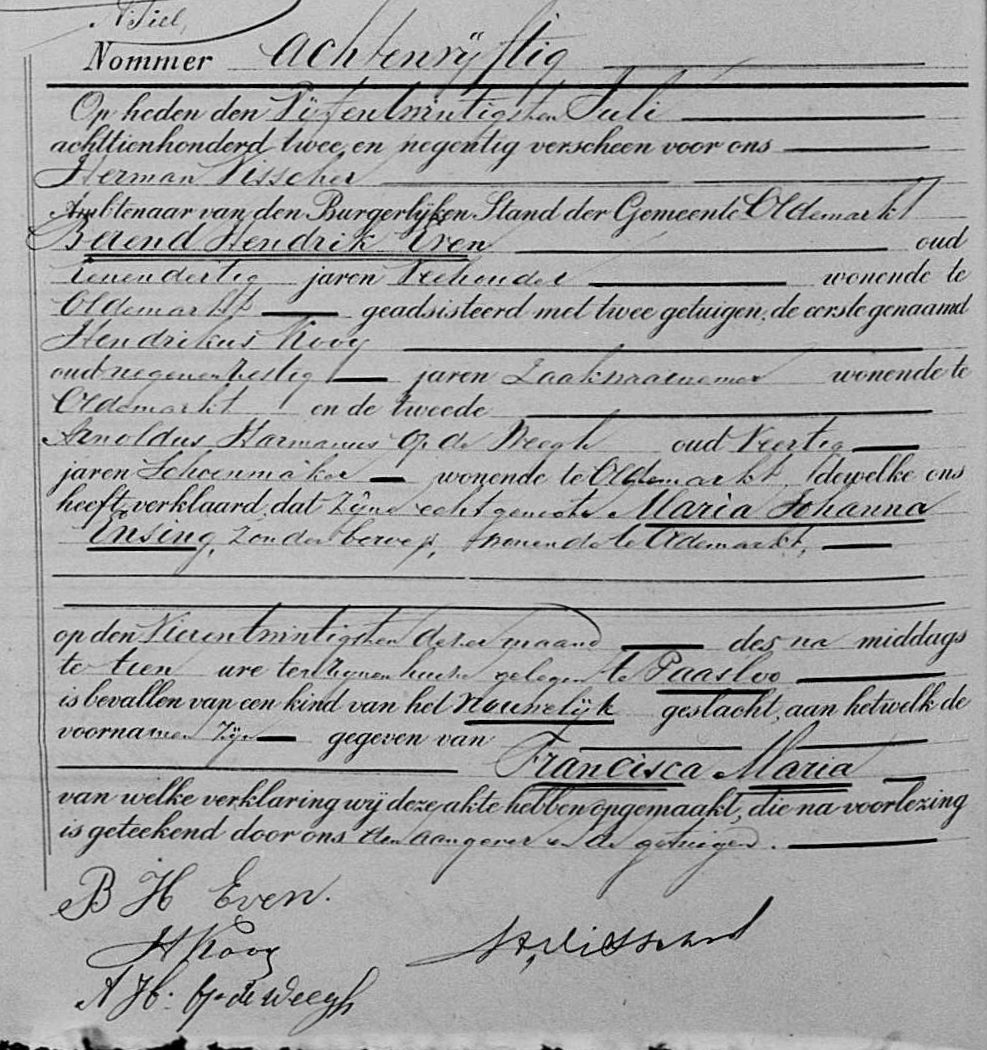 N. Piel,
Nommer achtenvijftig
Op heden den Vijfentwintigsten Juli
achttienhonderd twee en negentig verscheen voor ons
Herman Visscher
Ambtenaar van den Burgerlijken Stand der Gemeente Oldemarkt
Berend Hendrik Even oud
eenendertig jaren Veehouder wonende te
Oldemarkt geadsisteerd met twee getuigen, de eerste genaamd
Hendrikus Kooy
oud negenenzestig jaren Zaakwaarnemer wonende te
Oldemarkt en de tweede
Arnoldus Harmanus Op de Weegh oud Veertig
jaren Schoenmaker wonende te Oldemarkt, dewelke ons
heeft verklaard, dat zijne echtgenoote Maria Johanna
Ensing, zonder beroep, wonende te Oldemarkt,
op den Vierentwintigsten dezer maand des na middags
te tien ure ten zijnen huize gelegen te Paasloo
is bevallen van een kind van het Vrouwelijk geslacht, aan hetwelk de
voornamen zijn gegeven van
Francisca Maria
van welke verklaring wij deze akte hebben opgemaakt, die na voorlezing
is geteekend door ons den aangever en de getuigen.
B H Even.
H Kooy
H. Visscher
A H. Op de Weegh